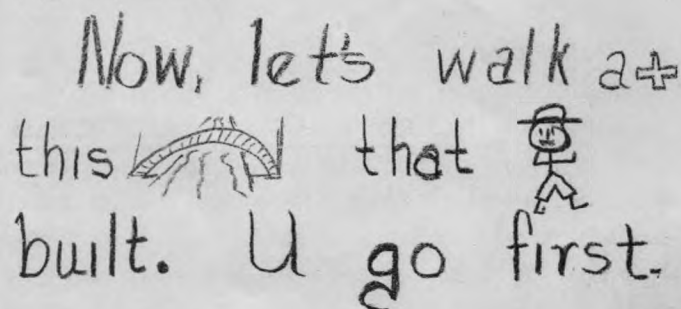 Now, let's walk a+
this that
built. U go first.